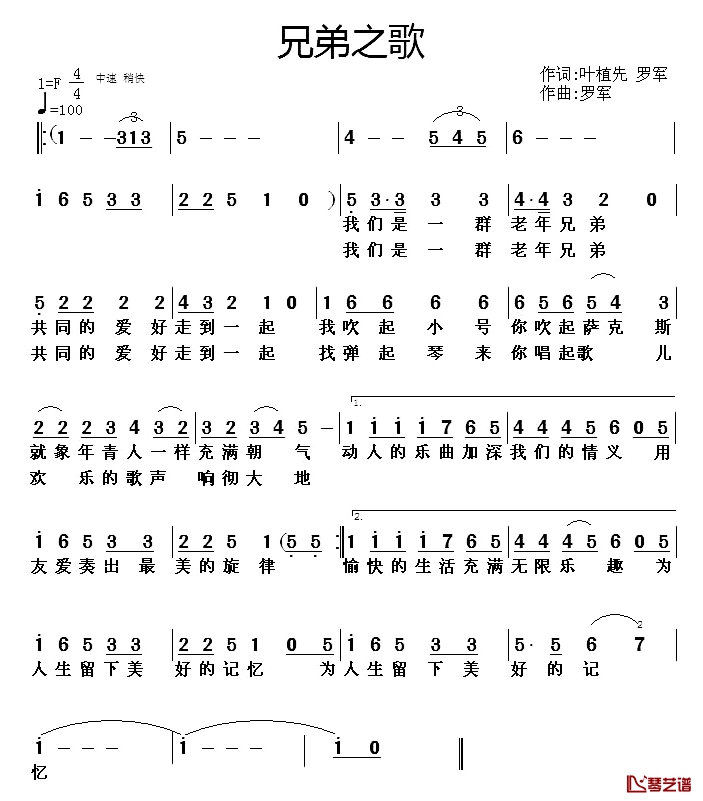 兄弟之歌
1=F 4/4 中速 稍快
♩=100
作词:叶植先 罗军
作曲:罗军
3 3
(1 - - 313 | 5 - - - | 4 - - 5 4 5 | 6 - - -
i 6 5 3 3 | 2 2 5 1 0 ) | 5 3·3 3 3 | 4·4 3 2 0
我们是一群老年兄弟
我们是一群老年兄弟
5 2 2 2 2 | 4 3 2 1 0 | 1 6 6 6 6 | 6 5 6 5 4 3
共同的爱好走到一起 我吹起小号你吹起萨克斯
共同的爱好走到一起 找弹起琴来你唱起歌儿
1.
2 2 2 3 4 3 2 | 3 2 2 3 4 5 - | 1 i i i 7 6 5 | 4 4 4 5 6 0 5
就象年青人一样充满朝气 动人的乐曲加深我们的情义用
欢乐的歌声响彻大地
2.
i 6 5 3 3 | 2 2 5 1 (5 5 :| 1 i i i 7 6 5 | 4 4 4 5 6 0 5
友爱奏出最美的旋律 愉快的生活充满无限乐趣为
2
i 6 5 3 3 | 2 2 5 1 0 5 | i 6 5 3 3 | 5· 5 6 7
人生留下美好的记忆 为人生留下美好的记
i - - - | i - - - | i 0 ‖
忆
琴艺谱